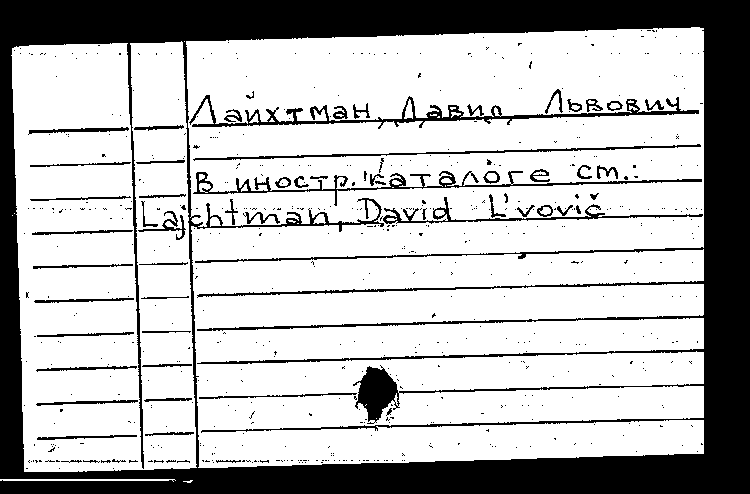 Лайхтман, Давид Львович
В иностр. каталоге ст.:
Lajchtman, David L'vovič